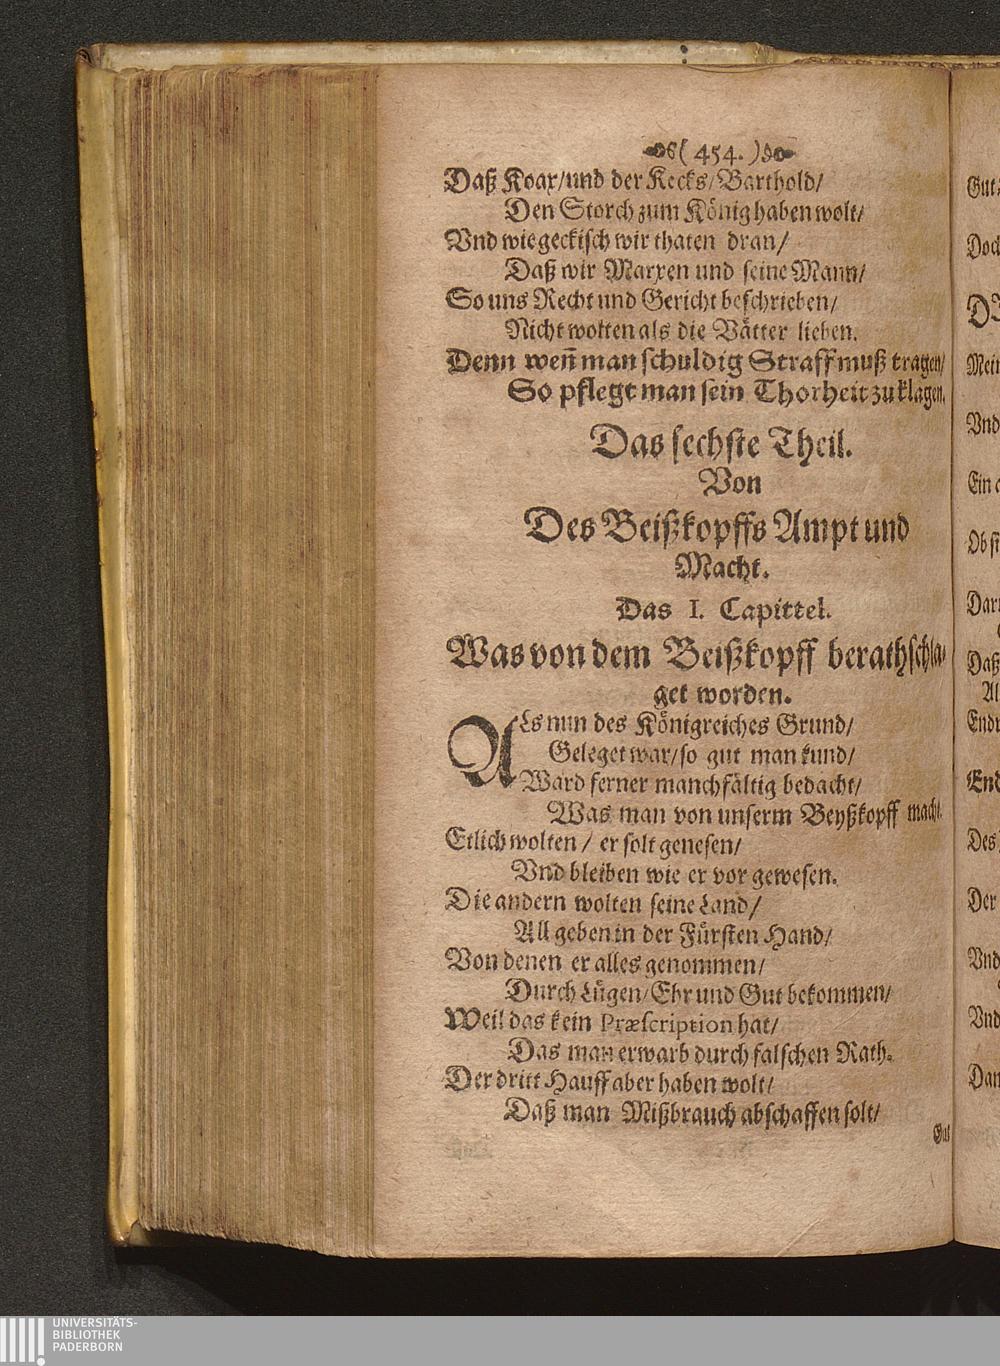 ( 454. )
Daß Koax/und der Kecks/Barthold/
Den Storch zum König haben wolt/
Vnd wie geckisch wir thaten dran/
Daß wir Marxen und seine Mann/
So uns Recht und Gericht beschrieben/
Nicht wolten als die Vätter lieben.
Denn weñ man schuldig Straff muß tragen/
So pflegt man sein Thorheit zu klagen.
Das sechste Theil.
Von
Des Beißkopffs Ampt und
Macht.
Das I. Capittel.
Was von dem Beißkopff berathschla-
get worden.
ALs nun des Königreiches Grund/
Geleget war/so gut man kund/
Ward ferner manchfältig bedacht/
Was man von unserm Beyßkopff macht.
Etlich wolten / er solt genesen/
Vnd bleiben wie er vor gewesen.
Die andern wolten seine Land/
All geben in der Fürsten Hand/
Von denen er alles genommen/
Durch Lügen/Ehr und Gut bekommen/
Weil das kein Præscription hat/
Das man erwarb durch falschen Rath.
Der dritt Hauff aber haben wolt/
Daß man Mißbrauch abschaffen solt/
Gut
Doch
Mein
Vnd
Ein
Ob
Daß
End
Des
Der
Vnd
Vnd
UNIVERSITÄTS-
BIBLIOTHEK
PADERBORN